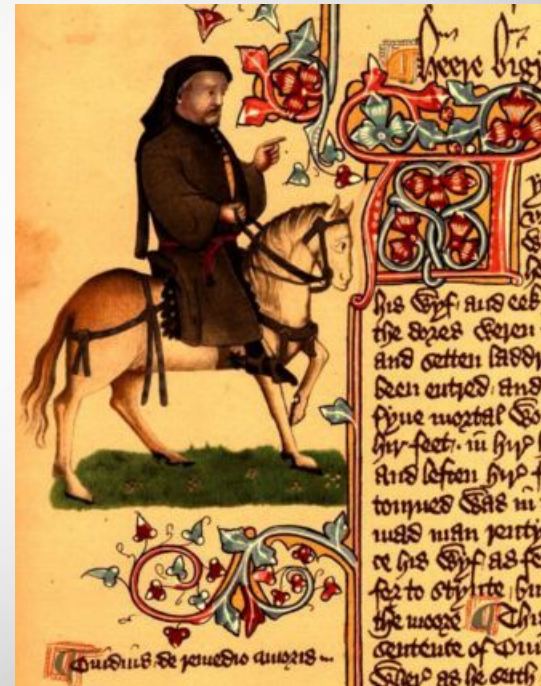 Heere bigy
A
his Wyf and eek
the dores Weren
and setten laddr
been entred. and
fyue mortal Wo
hir feet. in hir
and leften hir f
tourned Was in
mad man renty
ce his Wyf as fe
for to stynte
the moore This
sentence of Oui
Wher as he seith
Ouidius de remedio amoris